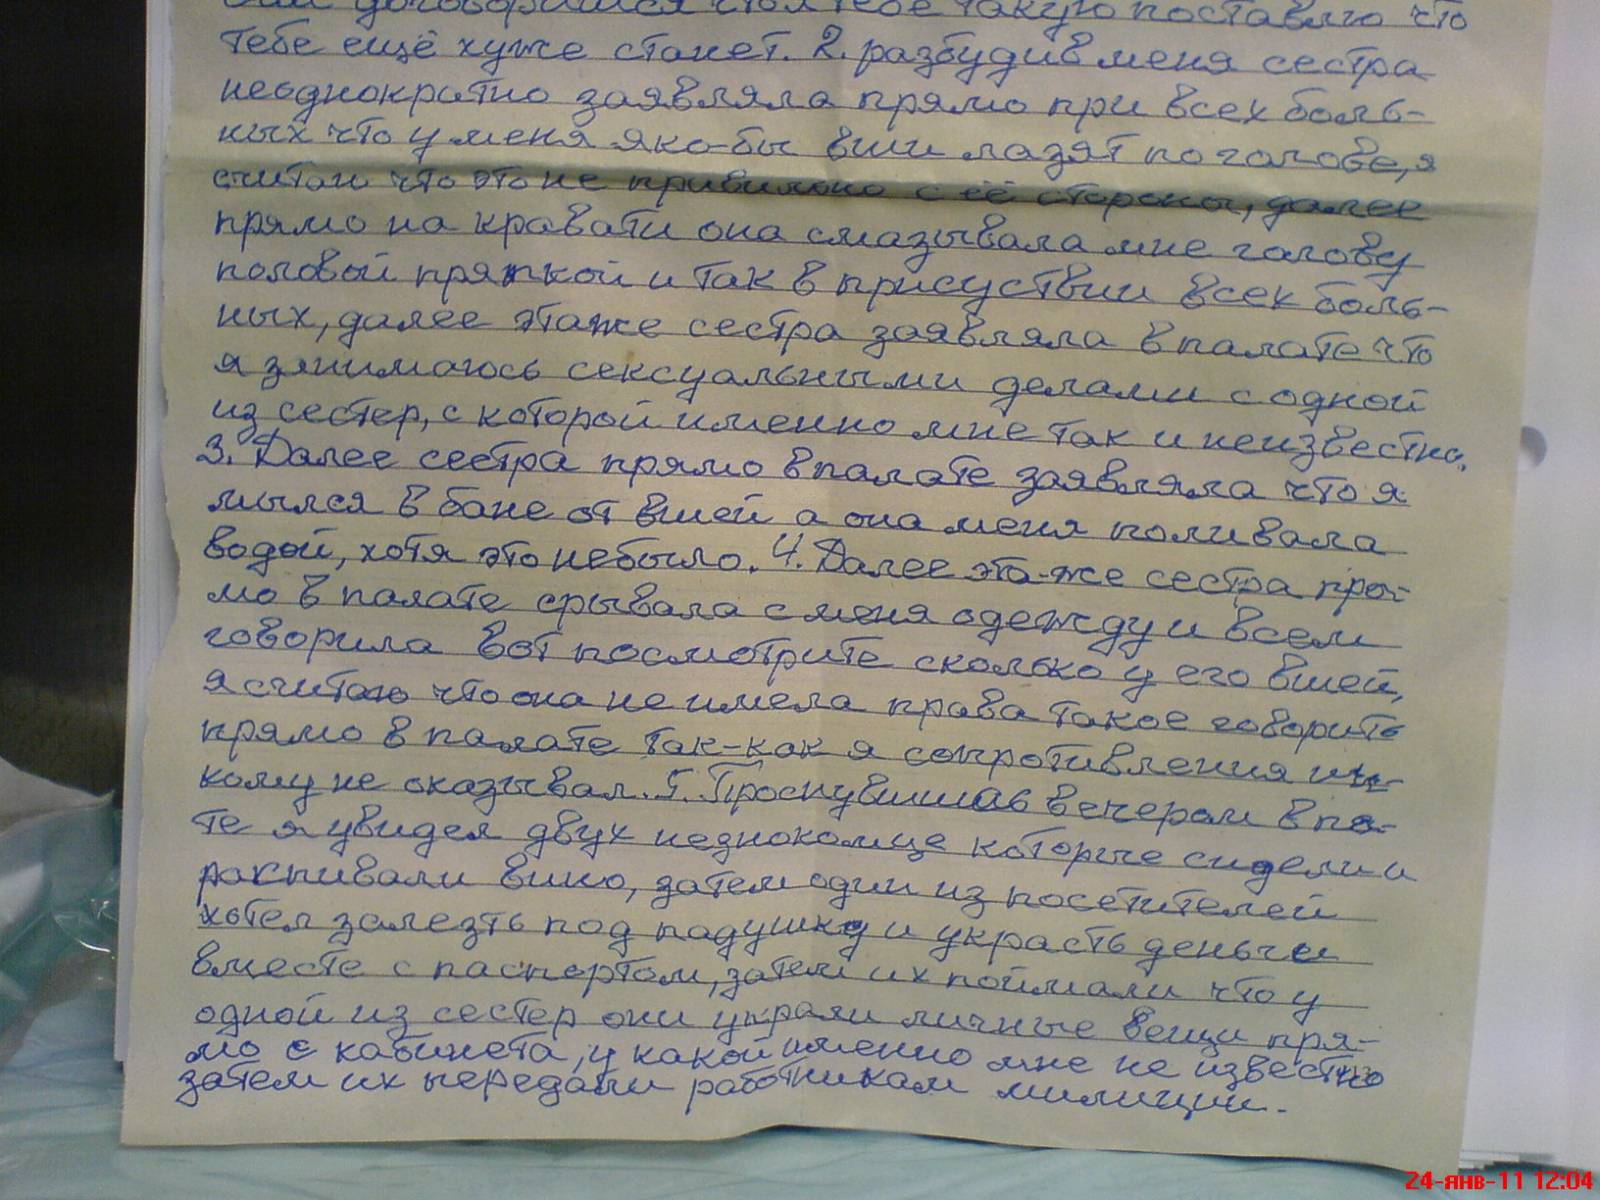 договорился что я тебе такую поставлю что
тебе ещё хуже станет. 2. разбудив меня сестра
неоднократно заявляла прямо при всех боль-
ных что у меня яко-бы вши лазят по голове, я
считаю что это не правильно с её стороны, далее
прямо на кравати она смазывала мне голову
половой тряпкой и так в присуствии всех боль-
ных, далее этаже сестра заявляла в палате что
я занимаюсь сексуальными делами с одной
из сестер, с которой именно мне так и неизвестно.
3. Далее сестра прямо в палате заявляла что я
мылся в бане от вшей а она меня поливала
водой, хотя это небыло. 4. Далее эта-же сестра пря-
мо в палате срывала с меня одежду и всем
говорила вот посмотрите сколько у его вшей,
я считаю что она не имела права такое говорить
прямо в палате так-как я сопротивления ни-
кому не оказывал. 5. Проснувшиаь вечером в па-
те я увидел двух незнокомце которые сидели и
распивали вино, затем один из посетителей
хотел залезть под падушку и украсть деньги
вместе с паспортом, затем их поймали что у
одной из сестер они украли личные вещи пря-
мо с кабинета, у какой именно мне не известно
затем их передали работникам милиции.
24-янв-11 12:04